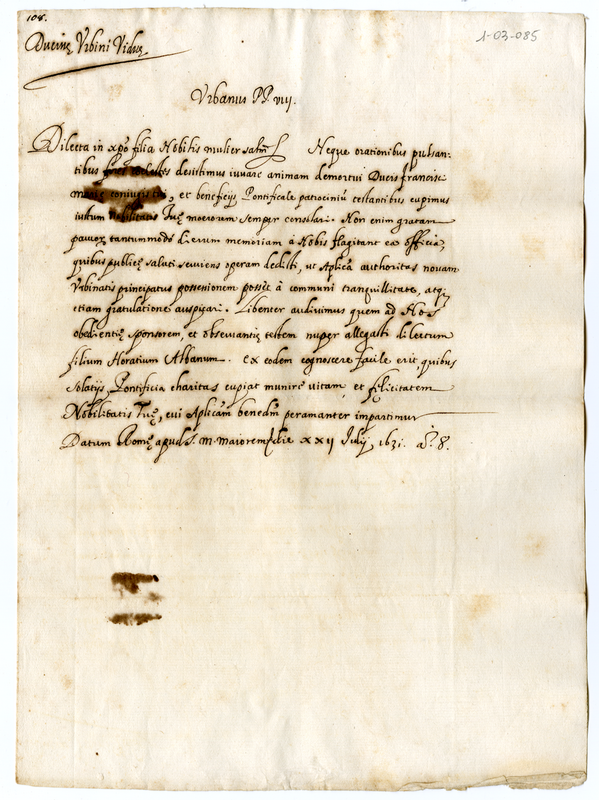 108.
1-03-085
Ducissę Urbini Viduę
Urbanus PP. VIII.
Dilecta in xpo filia Nobilis mulier salm̃ Neque orationibus pulsan-
tibus fores coelestes desistimus iuvare animam demortui Ducis Francisci
Marię coniugis tui, et beneficijs Pontificale patrociniũ testantibus cupimus
iustum Nobilitatis Tuę moerorem semper consolari. Non enim gratam
paucor tantummodo dierum memoriam à Nobis flagitant ea officia,
quibus publicę saluti serviens operam dedisti, ut Aplica authoritas novam
Urbinatis principatus possessionem posset à communi tranquillitate, atq
etiam gratulatione auspicari. Libenter audivimus quem ad Nos
obedientię sponsorem, et observantię testem nuper allegasti dilectum
filium Horatium Albanum. Ex eodem cognoscere facile erit, quibus
solatijs Pontificia charitas cupiat munire vitam, et fęlicitatem
Nobilitatis Tuę, cui Aplicam benedm peramanter impartimur
Datum Romę apud S. M. Maiorem die XXII Julij 1631. a.º 8.